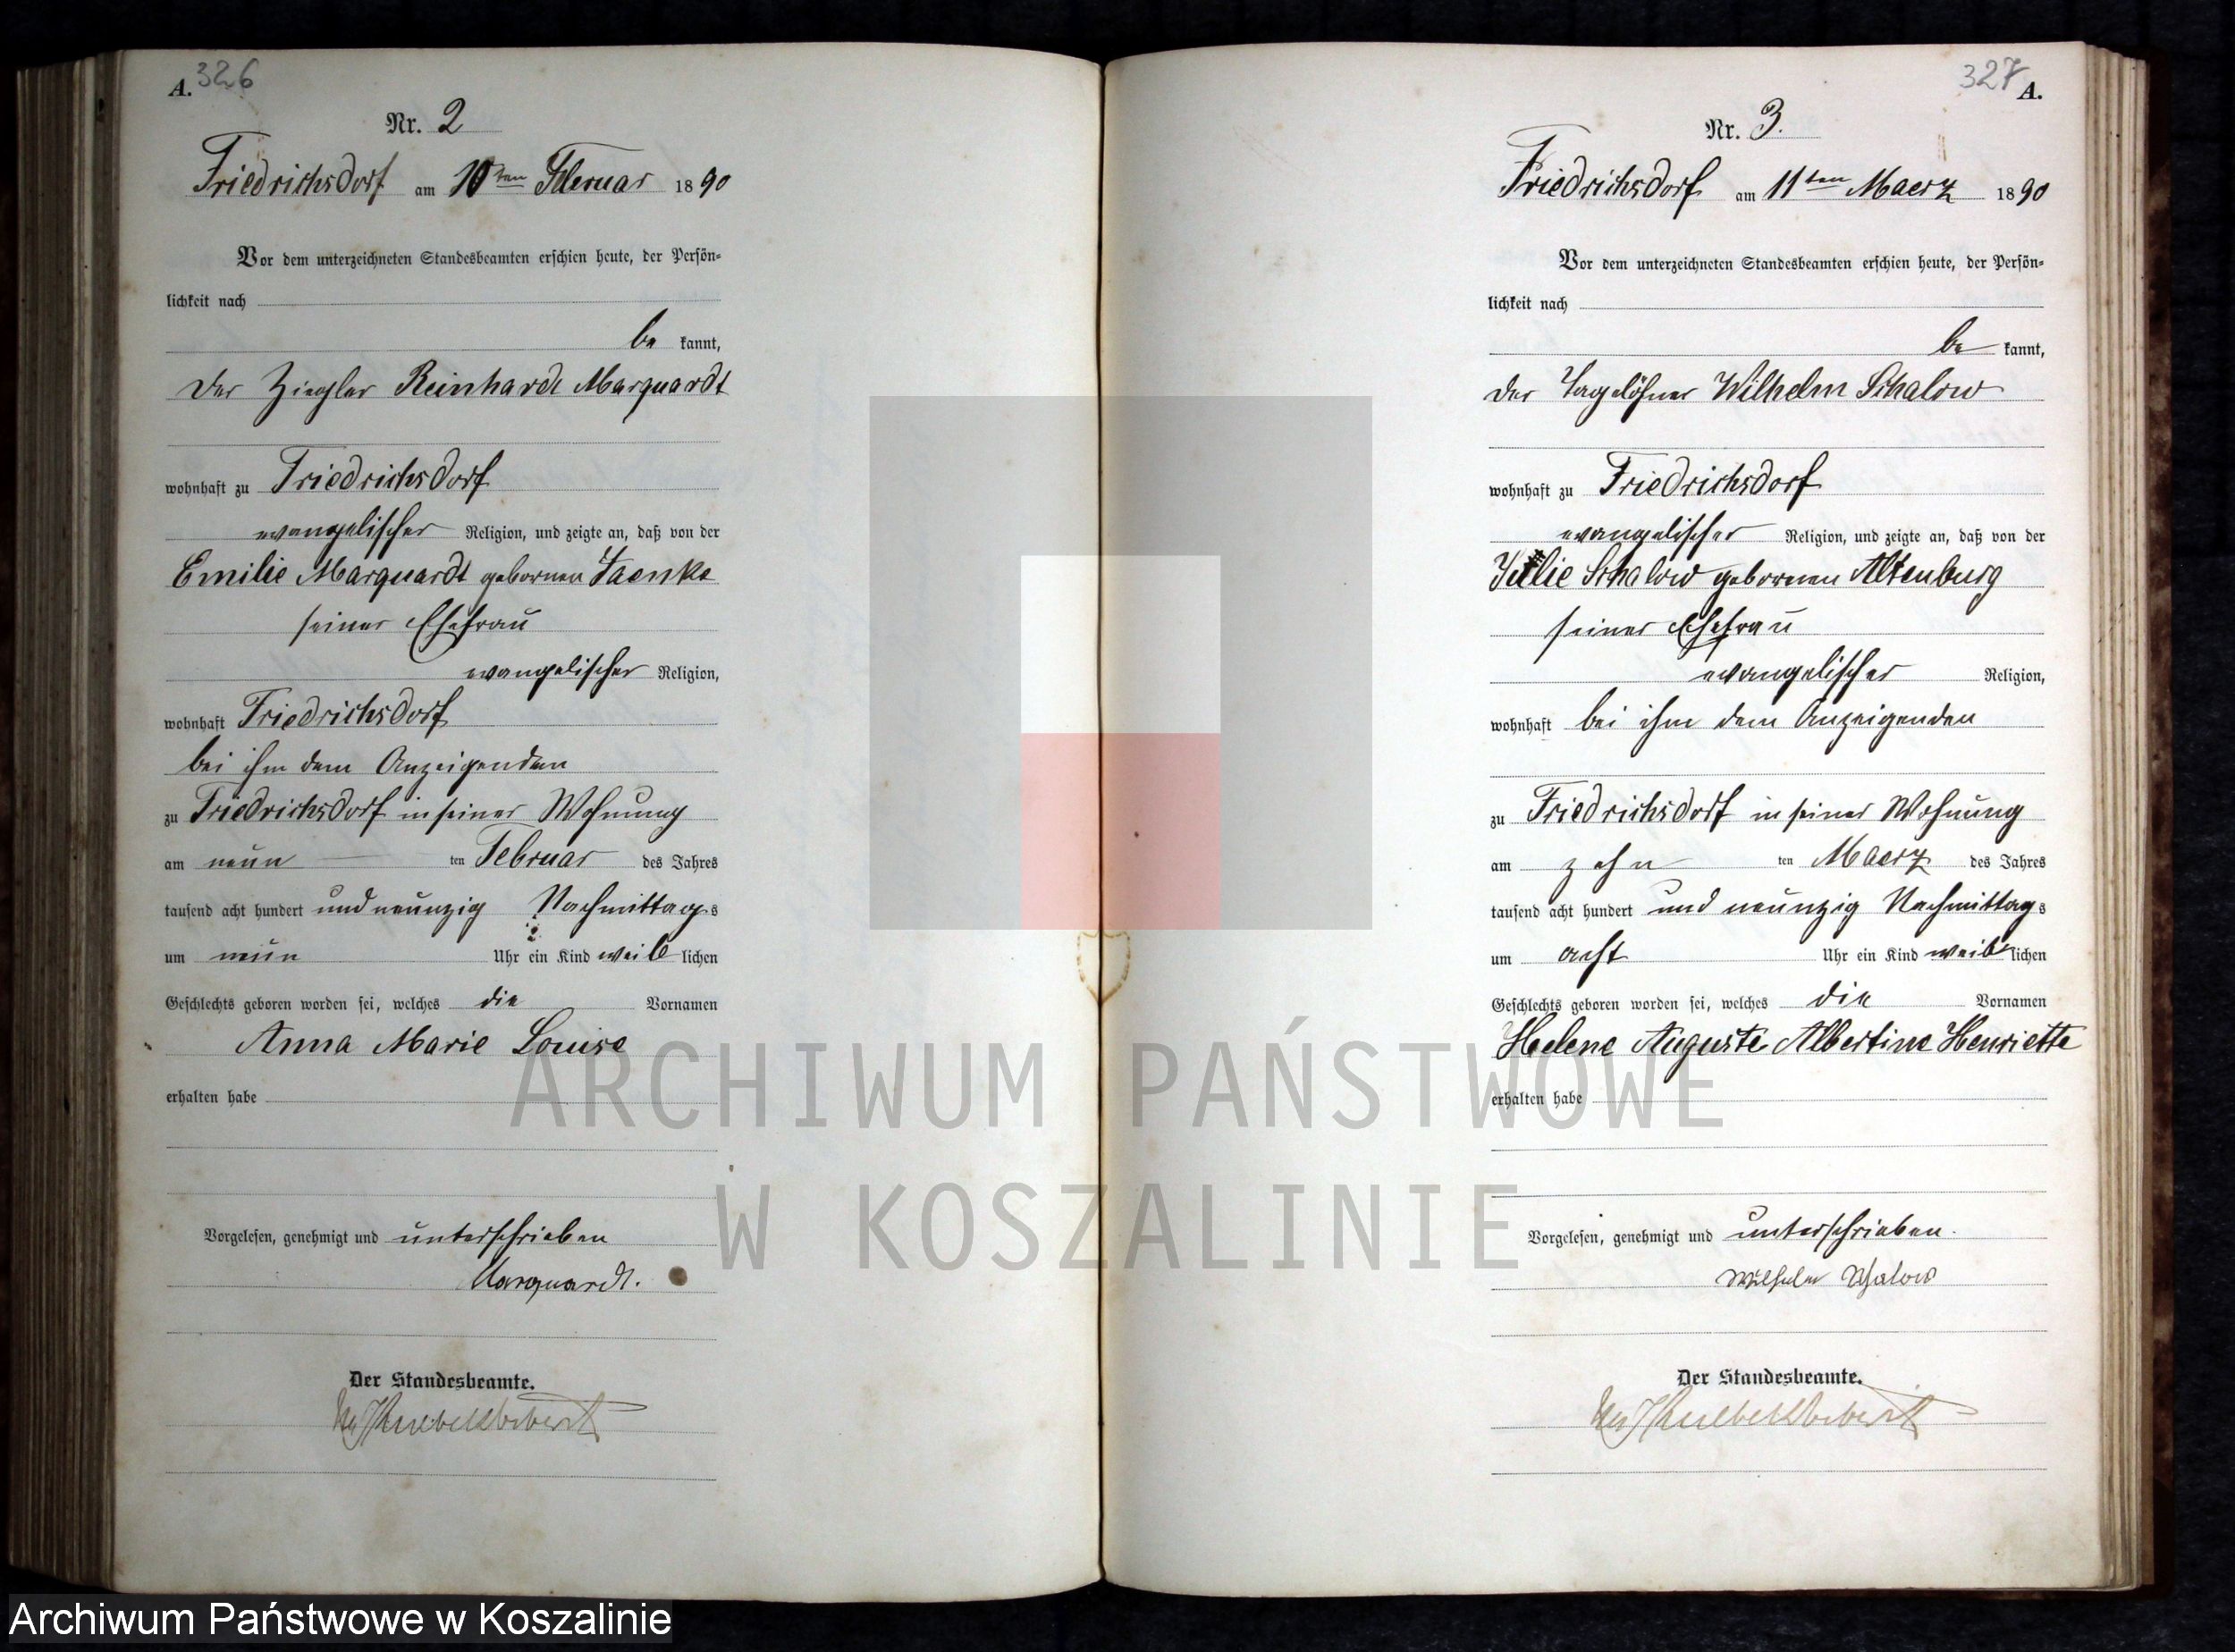 A. 326
Nr. 2
Friedrichsdorf am 10ten Februar 1890
Vor dem unterzeichneten Standesbeamten erschien heute, der Persön-
lichkeit nach
be kannt,
der Ziegler Reinhardt Marquardt
wohnhaft zu Friedrichsdorf
evangelischer Religion, und zeigte an, daß von der
Emilie Marquardt gebornen Jaenke
seiner Ehefrau
evangelischer Religion,
wohnhaft Friedrichsdorf
bei ihm dem Anzeigenden
zu Friedrichsdorf in seiner Wohnung
am neun ten Februar des Jahres
tausend acht hundert und neunzig Nachmittags
um neun Uhr ein Kind weib lichen
Geschlechts geboren worden sei, welches die Vornamen
Anna Marie Louise
erhalten habe
Vorgelesen, genehmigt und unterschrieben
Marquardt.
Der Standesbeamte.
327 A.
Nr. 3.
Friedrichsdorf am 11ten Maerz 1890
Vor dem unterzeichneten Standesbeamten erschien heute, der Persön-
lichkeit nach
be kannt,
der Tagelöhner Wilhelm Schalow
wohnhaft zu Friedrichsdorf
evangelischer Religion, und zeigte an, daß von der
Julie Schalow gebornen Altenburg
seiner Ehefrau
evangelischer Religion,
wohnhaft bei ihm dem Anzeigenden
zu Friedrichsdorf in seiner Wohnung
am zehn ten Maerz des Jahres
tausend acht hundert und neunzig Nachmittags
um acht Uhr ein Kind weib lichen
Geschlechts geboren worden sei, welches die Vornamen
Helene Auguste Albertine Henriette
erhalten habe
Vorgelesen, genehmigt und unterschrieben.
Wilhelm Schalow
Der Standesbeamte.
ARCHIWUM PAŃSTWOWE
W KOSZALINIE
Archiwum Państwowe w Koszalinie